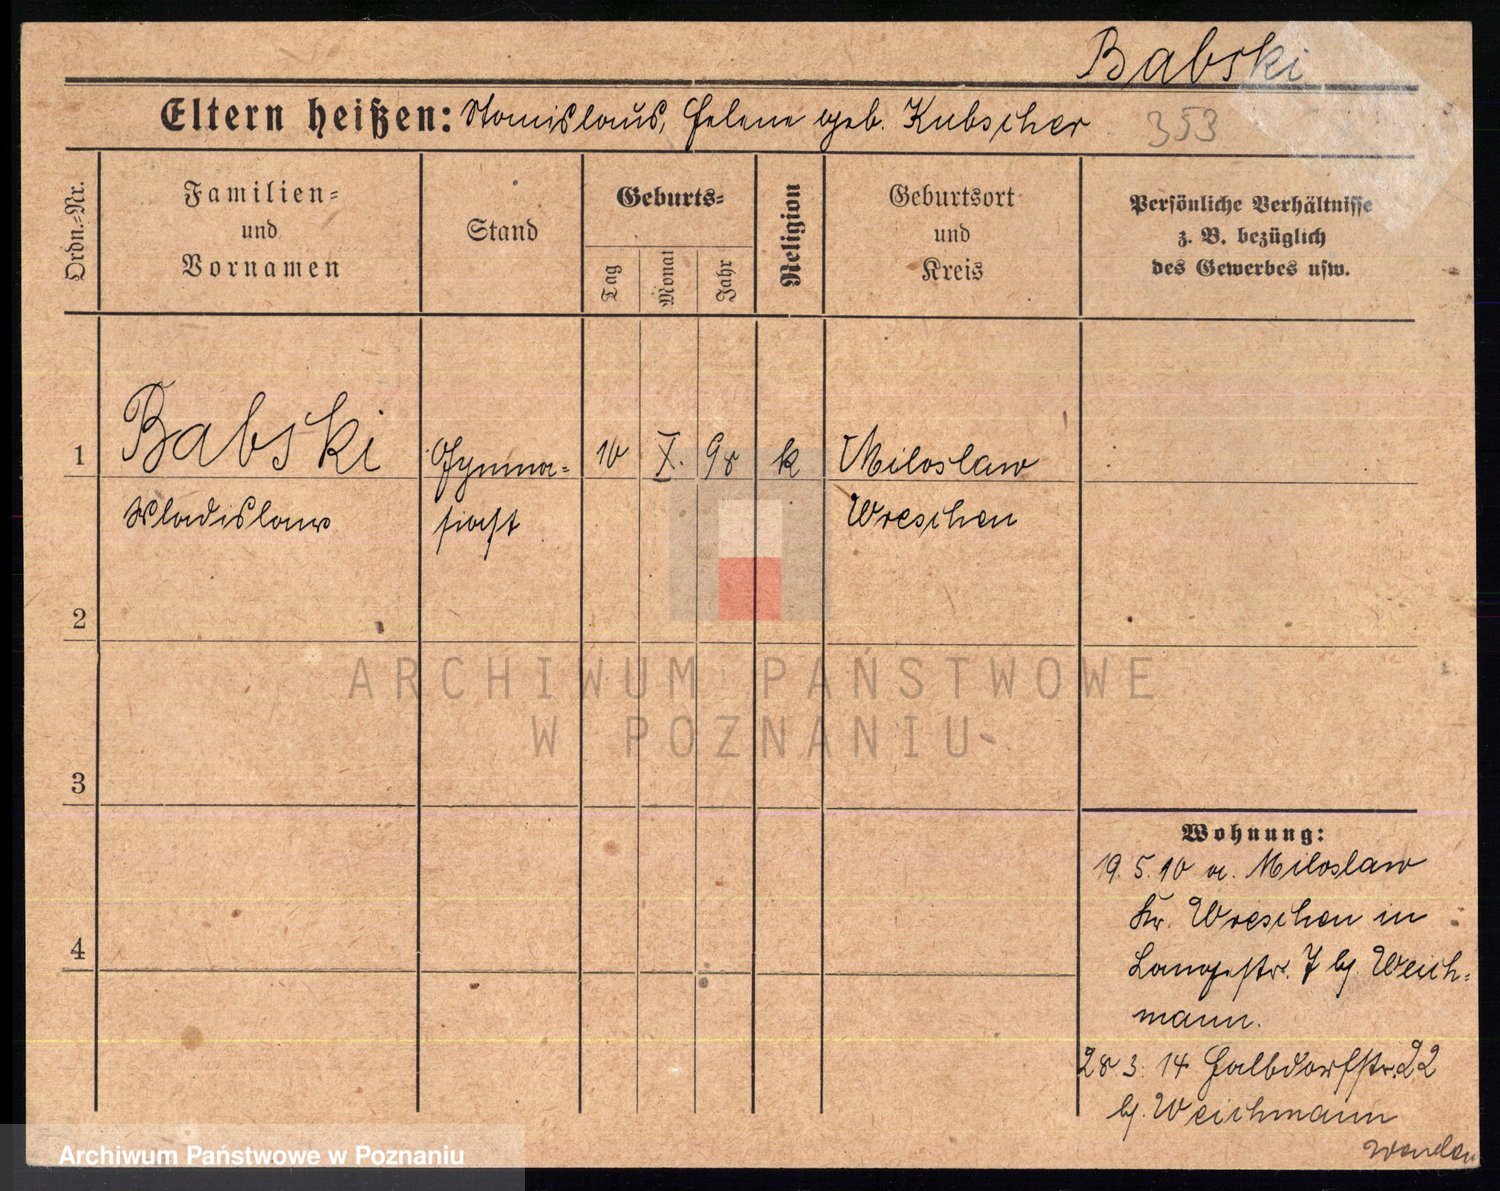 Babski
Eltern heißen: Stanislaus, Helene geb. Kubscher 353
Ordn.=Nr.
Familien=
und
Vornamen
Stand
Geburts=
Tag
Monat
Jahr
Religion
Geburtsort
und
Kreis
Persönliche Verhältnisse
z. B. bezüglich
des Gewerbes usw.
1 Babski Gymna= 10 X. 98 k Miloslaw
Wladislaw siast Wreschen
2
3
4
Wohnung:
19. 5. 10 v. Miloslaw
Kr. Wreschen in
Langestr. 7 bj. Weich=
mann.
28 3. 14 Halbdorfstr. 22
bj. Weichmann
Wenden
ARCHIWUM PAŃSTWOWE
W POZNANIU
Archiwum Państwowe w Poznaniu